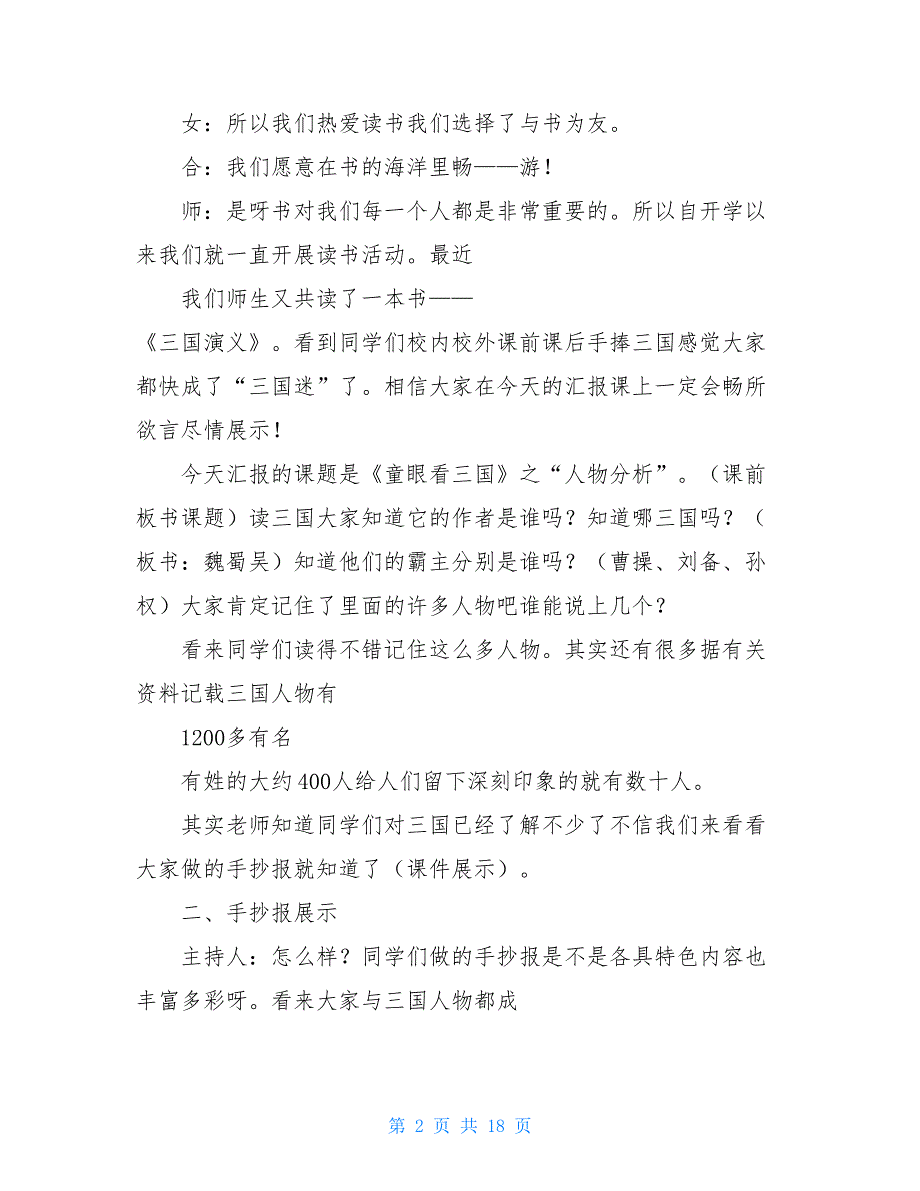 女：所以我们热爱读书我们选择了与书为友。
合：我们愿意在书的海洋里畅——游！
师：是呀书对我们每一个人都是非常重要的。所以自开学以
来我们就一直开展读书活动。最近
我们师生又共读了一本书——
《三国演义》。看到同学们校内校外课前课后手捧三国感觉大家
都快成了“三国迷”了。相信大家在今天的汇报课上一定会畅所
欲言尽情展示！
今天汇报的课题是《童眼看三国》之“人物分析”。（课前
板书课题）读三国大家知道它的作者是谁吗？知道哪三国吗？（
板书：魏蜀吴）知道他们的霸主分别是谁吗？（曹操、刘备、孙
权）大家肯定记住了里面的许多人物吧谁能说上几个？
看来同学们读得不错记住这么多人物。其实还有很多据有关
资料记载三国人物有
1200多有名
有姓的大约400人给人们留下深刻印象的就有数十人。
其实老师知道同学们对三国已经了解不少了不信我们来看看
大家做的手抄报就知道了（课件展示）。
二、手抄报展示
主持人：怎么样？同学们做的手抄报是不是各具特色内容也
丰富多彩呀。看来大家与三国人物都成
第 2 页 共 18 页